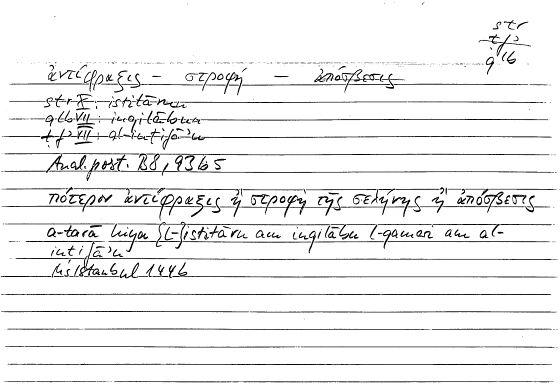 str
ṭfʾ
qlb
ἀντίφραξις – στροφή – ἀπόσβεσις
str X: istitārun
qlb VII: inqilābun
ṭfʾ VII: al-intifāʾu
Anal. post. B8, 93b5
πότερον ἀντίφραξις ἢ στροφὴ τῆς σελήνης ἢ ἀπόσβεσις
a-tarā huwa {l-}istitāru am inqilābu l-qamari am al-
intifāʾu
Ms Istanbul 1446